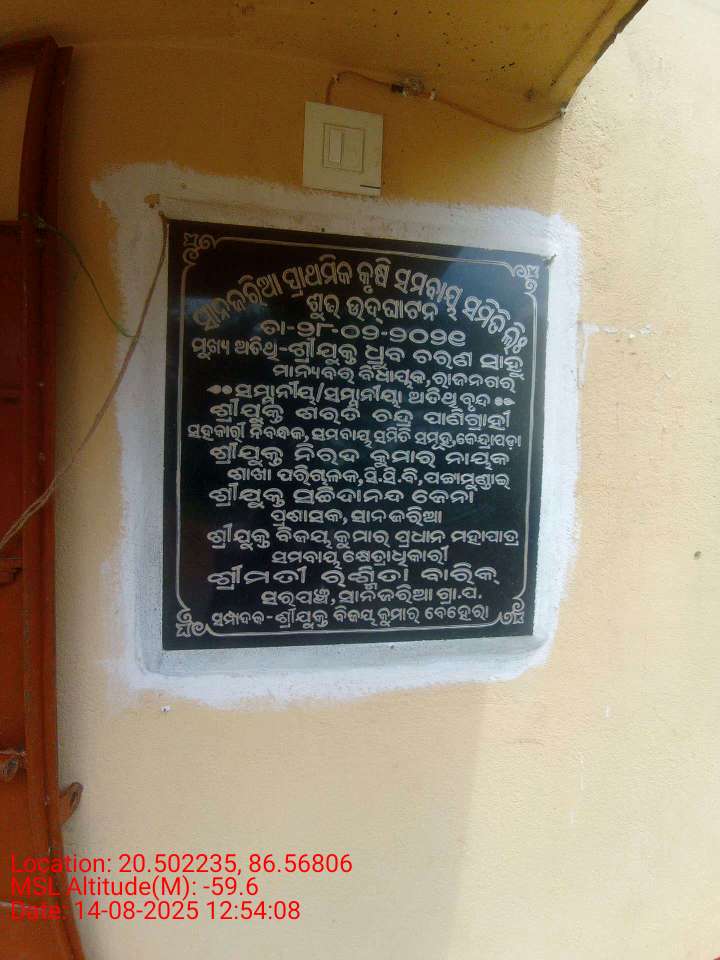 ସାନଜରିଆ ପ୍ରାଥମିକ କୃଷି ସମବାୟ ସମିତି ଲିଃ
ଶୁଭ ଉଦ୍‌ଘାଟନ
ତା-୨୮-୦୨-୨୦୨୧
ମୁଖ୍ୟ ଅତିଥି-ଶ୍ରୀଯୁକ୍ତ ଧ୍ରୁବ ଚରଣ ସାହୁ
ମାନ୍ୟବର ବିଧାୟକ,ରାଜନଗର
ସମ୍ମାନୀୟ/ସମ୍ମାନୀୟା ଅତିଥି ବୃନ୍ଦ
ଶ୍ରୀଯୁକ୍ତ ଶରତ ଚନ୍ଦ୍ର ପାଣିଗ୍ରାହୀ
ସହକାରୀ ନିବନ୍ଧକ,ସମବାୟ ସମିତି ସମୂହ,କେନ୍ଦ୍ରାପଡ଼ା
ଶ୍ରୀଯୁକ୍ତ ନିରଦ କୁମାର ନାୟକ
ଶାଖା ପରିଚାଳକ,ସି.ସି.ବି,ପଟ୍ଟାମୁଣ୍ଡାଇ
ଶ୍ରୀଯୁକ୍ତ ସଚ୍ଚିଦାନନ୍ଦ ଜେନା
ପ୍ରଶାସକ,ସାନଜରିଆ
ଶ୍ରୀଯୁକ୍ତ ବିଜୟ କୁମାର ପ୍ରଧାନ ମହାପାତ୍ର
ସମବାୟ କ୍ଷେତ୍ରାଧିକାରୀ
ଶ୍ରୀମତୀ ରଶ୍ମିତା ବାରିକ୍
ସରପଞ୍ଚ,ସାନଜରିଆ ଗ୍ରା.ପ.
ସମ୍ପାଦକ-ଶ୍ରୀଯୁକ୍ତ ବିଜୟ କୁମାର ବେହେରା
Location: 20.502235, 86.56806
MSL Altitude(M): -59.6
Date: 14-08-2025 12:54:08